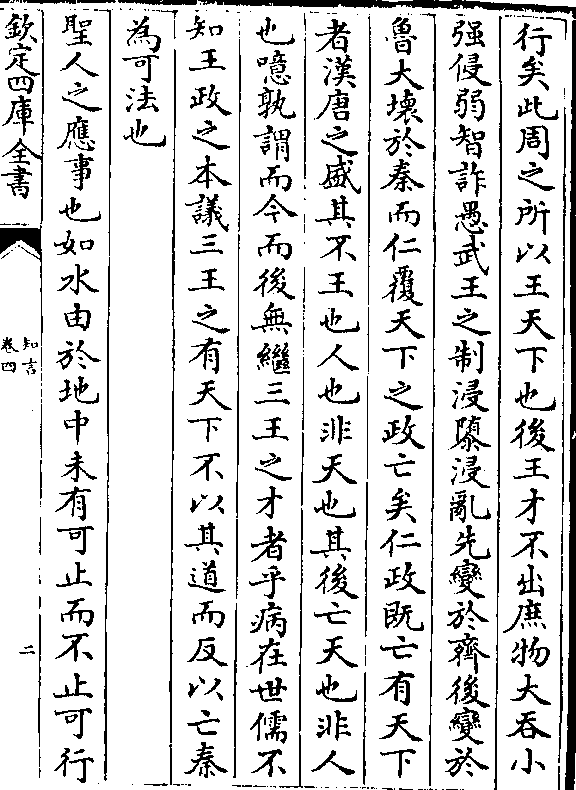 行矣此周之所以王天下也後王才不出庶物大吞小
强侵弱智詐愚武王之制浸隳浸亂先變於齊後變於
魯大壞於秦而仁覆天下之政亡矣仁政既亡有天下
者漢唐之盛其不王也人也非天也其後亡天也非人
也噫孰謂而今而後無繼三王之才者乎病在世儒不
知王政之本議三王之有天下不以其道而反以亡秦
為可法也
聖人之應事也如水由於地中未有可止而不止可行
欽定四庫全書
知言
卷四
二